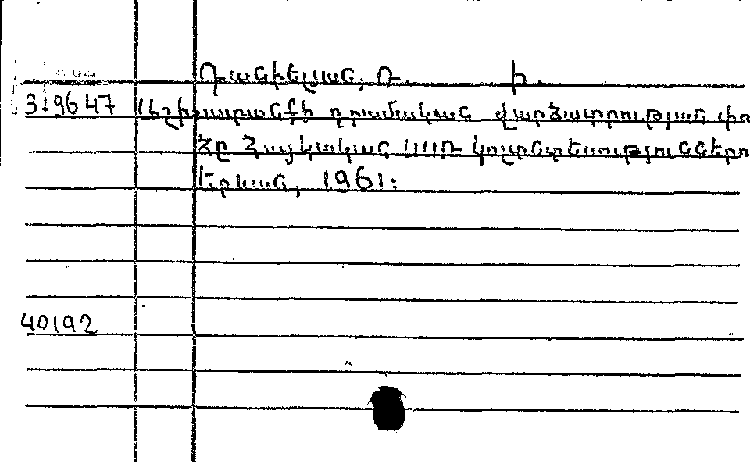 Դանիելյան, Ռ. Ի.
319647 Աշխատանքի դրամական վարձատրության փո
ձը Հայկական ՍՍՌ կոլտնտեսություններո
Երևան, 1961։
40192